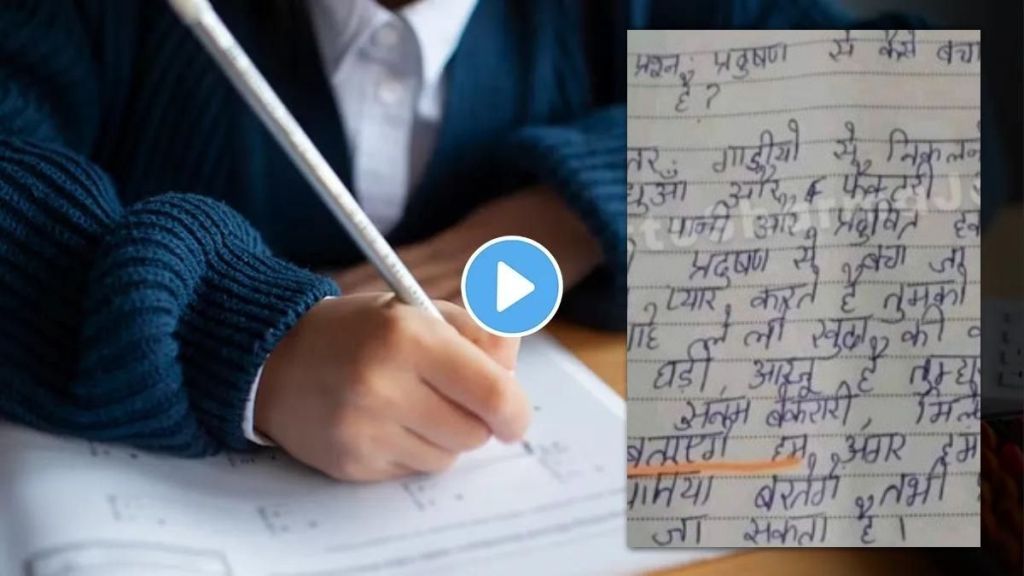 प्रश्न: प्रदुषण से कैसे बचा
है?
तर: गाडीयो से निकलने
धुआ और फैक्टरी
पानी और प्रदुषित
प्रदुषण से बचा जा
प्यार करते है तुमको
ले लो खुदा की
घड़ी, आरजू है तुम्हा
सनम बेकरारी,
बताएगे हम, अगर हम
बरतेगे तभी
जा सकता है।